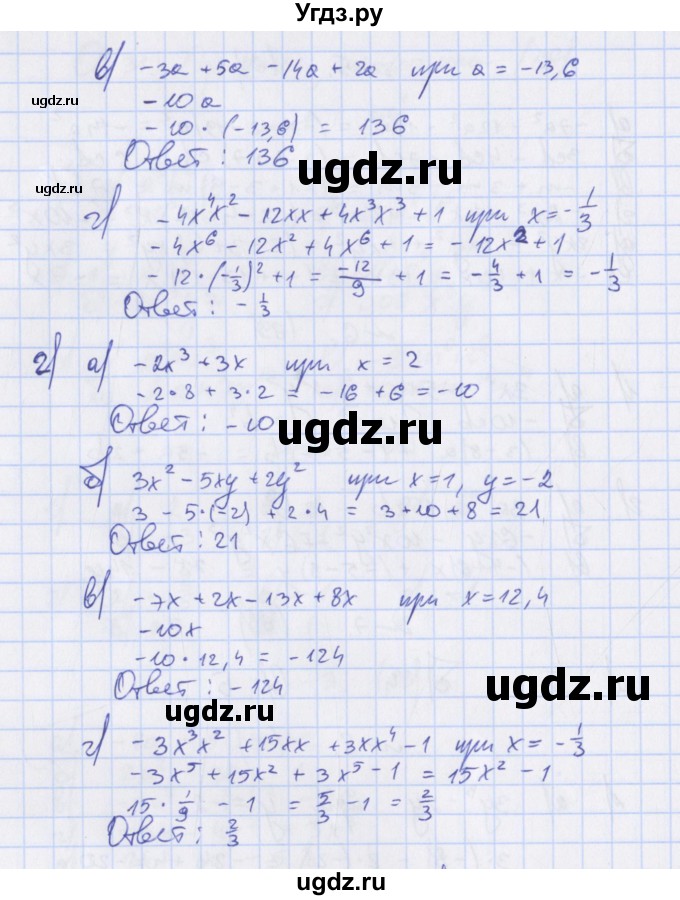 Угдз.ру
в) -3a + 5a - 14a + 2a при a = -13,6
ugdz.ru
-10a
-10·(-13,6) = 136
Ответ: 136
ugdz.ru
ugdz.ru
г) -4x⁴x² - 12xx + 4x³x³ + 1 при x = -1/3
-4x⁶ - 12x² + 4x⁶ + 1 = -12x² + 1
-12·(-1/3)² + 1 = -12/9 + 1 = -4/3 + 1 = -1/3
Ответ: -1/3
2) а) -2x³ + 3x при x = 2
-2·8 + 3·2 = -16 + 6 = -10
Ответ: -10
ugdz.ru
б) 3x² - 5xy + 2y² при x = 1, y = -2
3 - 5·(-2) + 2·4 = 3 + 10 + 8 = 21
Ответ: 21
в) -7x + 2x - 13x + 8x при x = 12,4
-10x
-10·12,4 = -124
Ответ: -124
ugdz.ru
ugdz.ru
г) -3x³x² + 15xx + 3xx⁴ - 1 при x = -1/3
-3x⁵ + 15x² + 3x⁵ - 1 = 15x² - 1
15·1/9 - 1 = 5/3 - 1 = 2/3
Ответ: 2/3
ugdz.ru